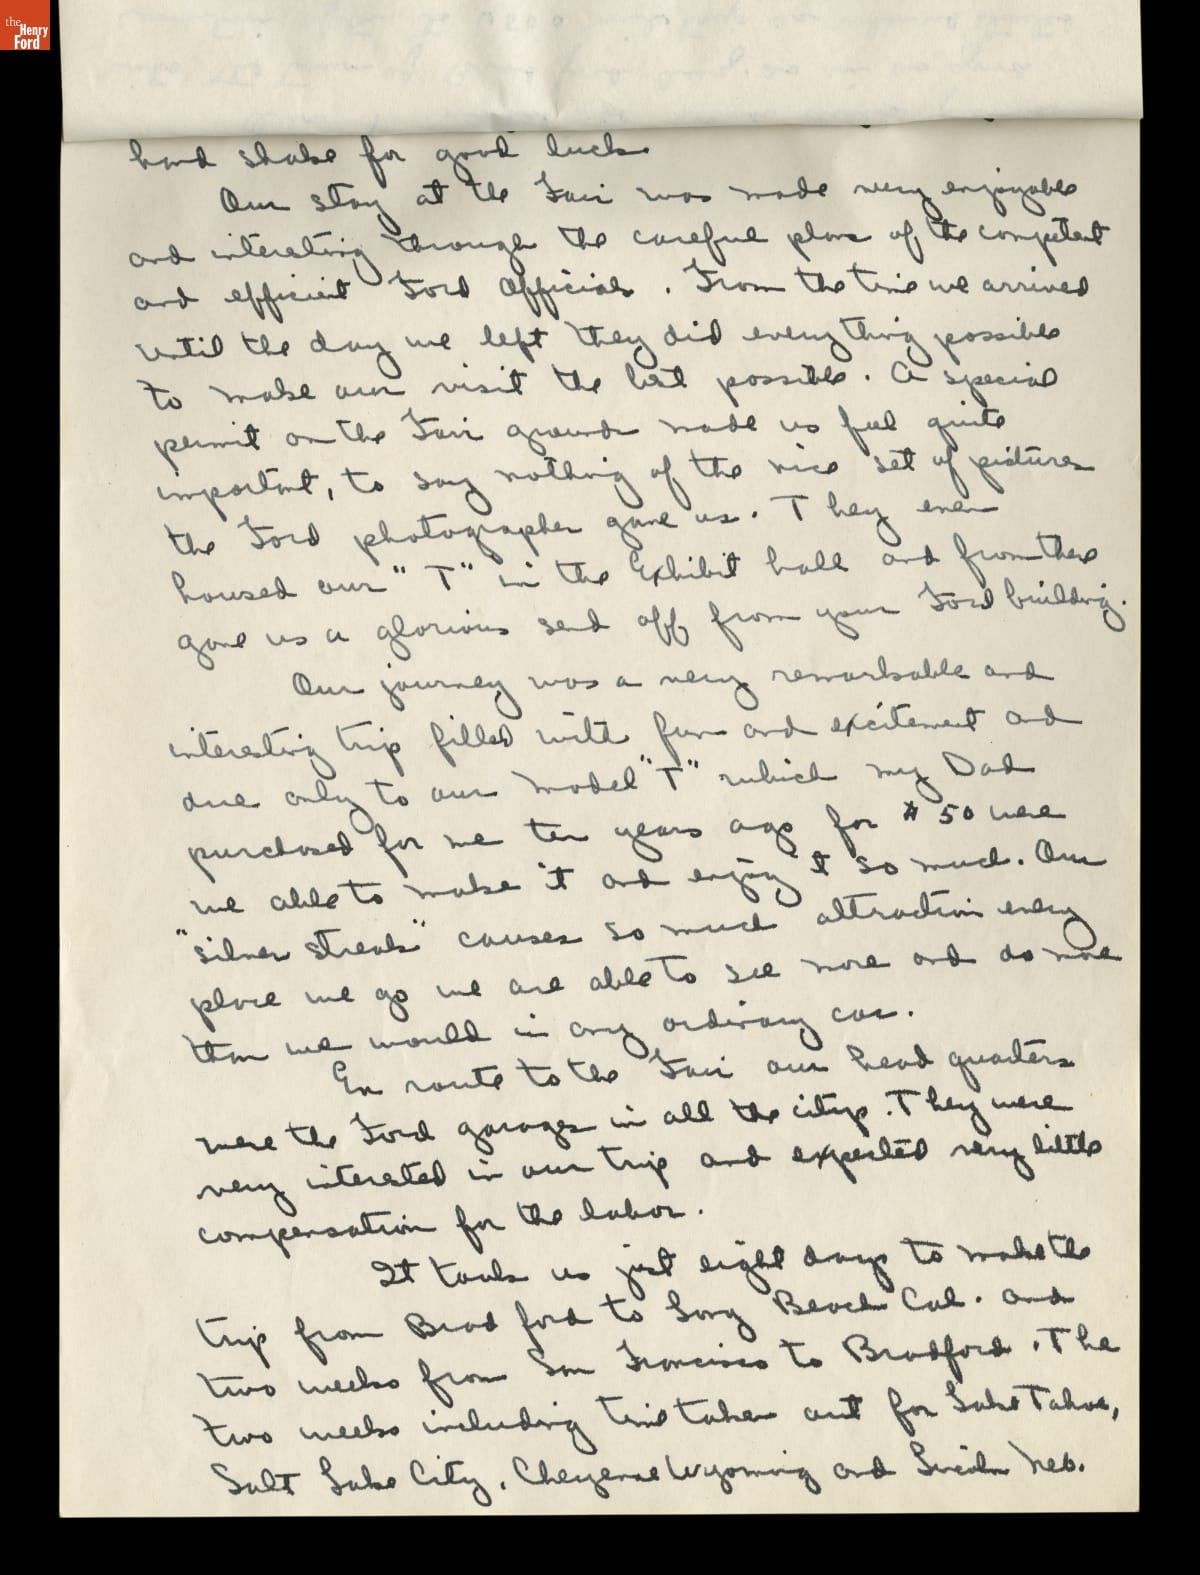 the
Henry
Ford
hand shake for good luck.
Our stay at the Fair was made very enjoyable
and interesting through the careful plans of the competent
and efficient Ford Officials. From the time we arrived
until the day we left they did everything possible
to make our visit the best possible. A special
permit on the Fair grounds made us feel quite
important, to say nothing of the nice set of pictures
the Ford photographer gave us. They even
housed our "T" in the Exhibit hall and from there
gave us a glorious send off from your Ford building.
Our journey was a very remarkable and
interesting trip filled with fun and excitement and
due only to our model "T" which my Dad
purchased for me ten years ago for $50 were
we able to make it and enjoy it so much. Our
"silver streak" causes so much attraction every
place we go we are able to see more and do more
than we would in any ordinary car.
En route to the Fair our head quarters
were the Ford garages in all the citys. They were
very interested in our trip and expected very little
compensation for the labor.
It took us just eight days to make the
trip from Bradford to Long Beach Cal. and
two weeks from San Francisco to Bradford. The
two weeks including time taken out for Lake Tahoe,
Salt Lake City, Cheyenne Wyoming and Lincoln Neb.